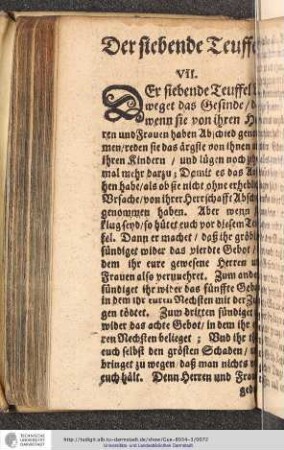 Der siebende Teuffe
VII.
DEr siebende Teuffel
weget das Gesinde /
wenn sie von ihren
ren und Frauen haben Abschied gen
men / reden sie das ärgste von ihnen
ihren Kindern / und lügen noch
mal mehr darzu; Damit es das
hen habe / als ob sie nicht ohne erheb
Ursache / von ihrer Herrschafft Absch
genommen haben. Aber wenn
klug seyd / so hütet euch vor diesem
fel. Dann er machet / daß ihr gröb
sündiget wider das vierdte Gebot /
dem ihr eure gewesene Herren
Frauen also verunehret. Zum ander
sündiget ihr wider das fünffte Geb
in dem ihr euren Nechsten mit der Zu
gen tödtet. Zum dritten sündiget
wider das achte Gebot / in dem ihr
ren Nechsten belieget; Und ihr
euch selbst den grösten Schaden /
bringet zu wegen / daß man nichts
euch hält. Denn Herren und Frau
geb
http://tudigit.ulb.tu-darmstadt.de/show/Gue-8604-3/0070
Universitäts- und Landesbibliothek Darmstadt